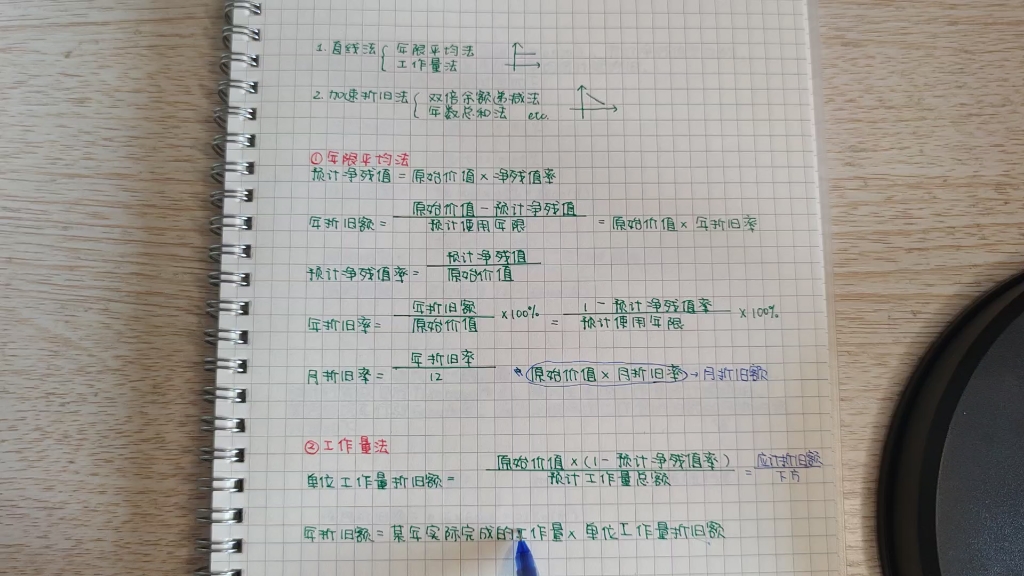 1. 直线法 { 年限平均法
工作量法
2. 加速折旧法 { 双倍余额递减法
年数总和法 etc.
①年限平均法
预计净残值 = 原始价值 × 净残值率
年折旧额 = 原始价值 - 预计净残值 / 预计使用年限 = 原始价值 × 年折旧率
预计净残值率 = 预计净残值 / 原始价值
年折旧率 = 年折旧额 / 原始价值 × 100% = 1 - 预计净残值率 / 预计使用年限 × 100%
月折旧率 = 年折旧率 / 12 * 原始价值 × 月折旧率 → 月折旧额
②工作量法
单位工作量折旧额 = 原始价值 × (1 - 预计净残值率) / 预计工作量总额 = 应计折旧额 / 下方
年折旧额 = 某年实际完成的工作量 × 单位工作量折旧额